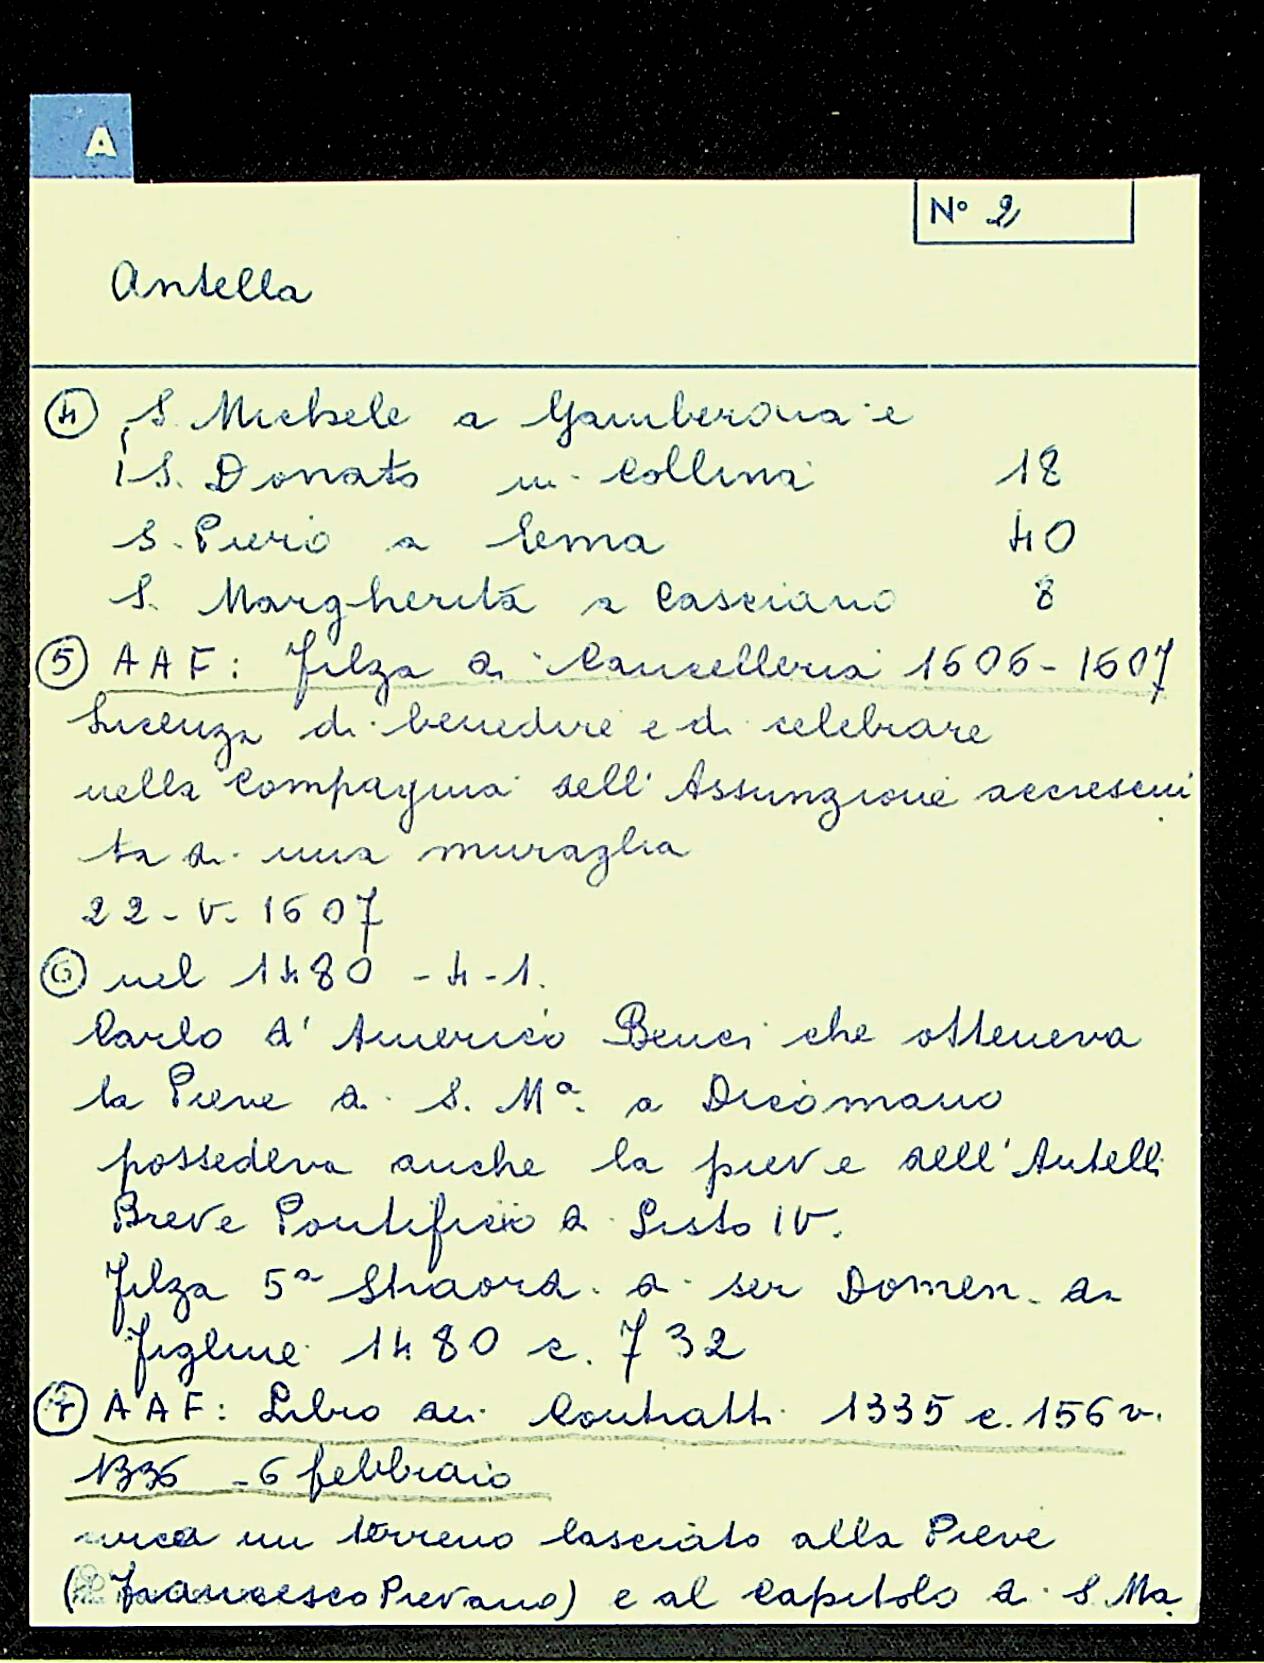 A
N° 2
Antella
④ S. Michele a Gamberaia e
S. Donato in Collina 18
S. Piero a Ema 40
S. Margherita a Casciano 8
⑤ AAF: Filza di Cancelleria 1606-1607
Licenza di benedire e di celebrare
nella Compagnia dell'Assunzione accresciu
ta di una muraglia
22-V-1607
⑥ nel 1480-4-1.
Carlo d'Americo Benci che otteneva
la Pieve di S. Mª. a Dicomano
possedeva anche la pieve dell'Antella
Breve Pontificio di Sisto IV.
Filza 5ª Straord. di ser Domen. da
Figline 1480 c. 732
⑦ AAF: Libro dei Contratti 1335 c. 156 v.
1336 - 6 febbraio
circa un terreno lasciato alla Pieve
(Francesco Pievano) e al Capitolo di S. Ma